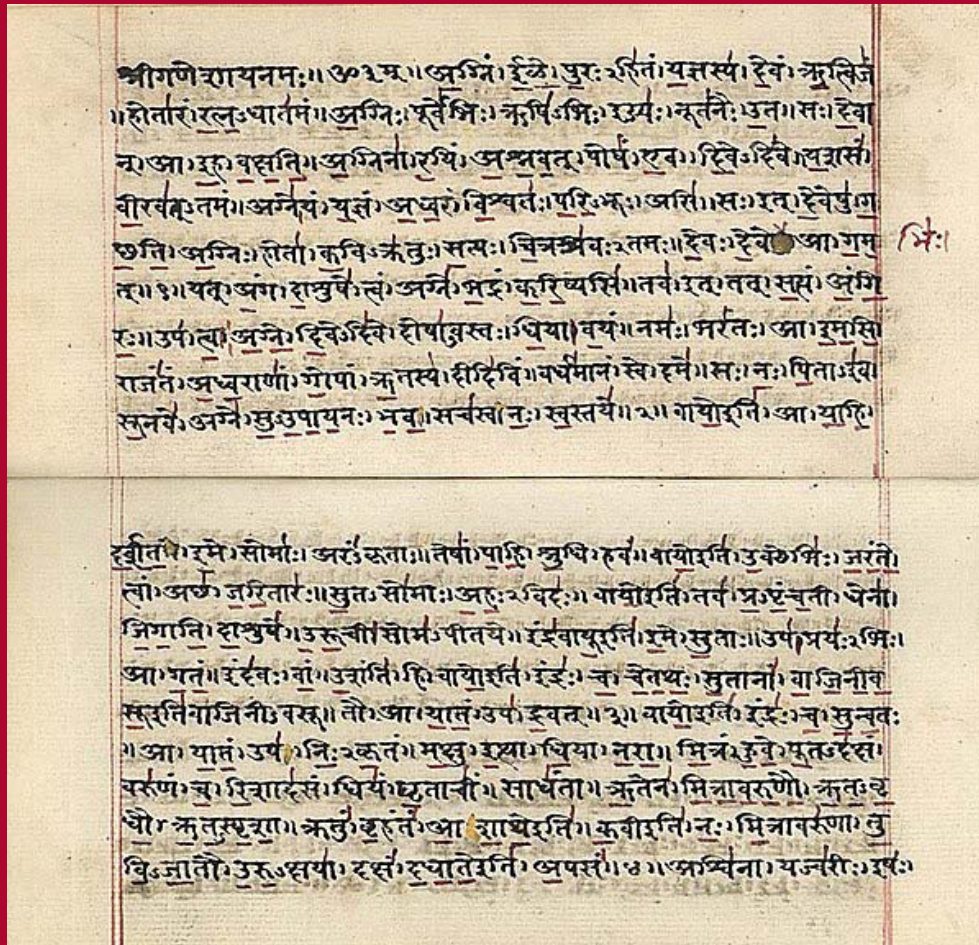 श्रीगणेशायनमः॥ॐ३म्॥अ॒ग्निं।ई॒ळे॒।पु॒रःऽहि॑तं।य॒ज्ञस्य॑।दे॒वं।ऋ॒त्विजं॑
॥होता॑रं।र॒त्न॒ऽधात॑मं॥अ॒ग्निः।पूर्वे॑भिः।ऋषि॑ऽभिः।ईड्यः॑।नूत॑नैः।उ॒त॥सः।दे॒वा
न्।आ।इ॒ह।व॒क्ष॒ति॒॥अ॒ग्निना॑।र॒यिं।अ॒श्न॒व॒त्।पोषं॑।ए॒व।दि॒वेऽदि॑वे॥य॒शसं॑
वी॒रव॑त्ऽतमं॥अग्ने॑।यं।य॒ज्ञं।अ॒ध्व॒रं।वि॒श्वतः॑।प॒रि॒ऽभूः।असि॑॥सः।इत्।दे॒वेषु॑।ग॒
च्छ॒ति॒।अ॒ग्निः।होता॑।क॒विऽक्र॑तुः।स॒त्यः।चि॒त्रश्र॑वःऽतमः॥दे॒वः।दे॒वे।आ।ग॒म॒ भिः॑।
त्॥१॥यत्।अं॒ग।दा॒शुषे॑।त्वं।अग्ने॑।भ॒द्रं।क॒रि॒ष्यसि॑॥तव॑।इत्।तत्।स॒त्यं।अं॒गि॒
रः॒॥उप॑।त्वा॒।अ॒ग्ने॒।दि॒वेऽदि॑वे।दोषा॑ऽवस्तः।धि॒या।व॒यं॥नमः॑।भरं॑तः।आ।इ॒म॒सि॒
राजं॑तं।अ॒ध्व॒राणां॑।गो॒पां।ऋ॒तस्य॑।दीदि॑विं॥वर्ध॑मानं।स्वे।दमे॑॥सः।नः॒।पि॒ताऽइ॑व।
सू॒नवे॑।अग्ने॑।सु॒ऽउ॒पा॒य॒नः।भ॒व॒॥सच॑स्व।नः॒।स्व॒स्तये॑॥२॥वायो॒इति॑।आ।या॒हि॒।
द॒र्श॒त॒।इ॒मे।सोमाः॑।अरं॑ऽकृताः॥तेषां॑।पा॒हि॒।श्रु॒धि।हवं॑॥वायो॒इति॑।उ॒क्थेभिः॑।ज॒रं॒ते॒
त्वां।अच्छ॑।ज॒रि॒तारः॑॥सु॒तऽसो॑माः।अ॒हः॒ऽविदः॑॥वायो॒इति॑।तव॑।प्र॒ऽपृं॒च॒ती।धेना॑।
जि॒गा॒ति॒।दा॒शुषे॑॥उ॒रू॒ची।सोम॑ऽपीतये॥इंद्र॑वायू॒इति॑।इ॒मे।सु॒ताः॥उप॑।प्रयः॑ऽभिः।
आ।ग॒तं॒॥इंद॑वः।वां॒।उ॒शंति॑।हि॥वायो॒इति॑।इंद्रः॑।च॒।चे॒त॒थः॒।सु॒तानां॑।वा॒जि॒नी॒व॒
सू॒इति॑वाजिनीऽवसू॥तौ।आ।या॒तं॒।उप॑।द्र॒वत्॥३॥वायो॒इति॑।इंद्रः॑।च॒।सु॒न्व॒तः
॥आ।या॒तं॒।उप॑।निः॒ऽकृ॒तं॥म॒क्षु।इ॒त्था।धि॒या।न॒रा॒॥मि॒त्रं।हु॒वे॒।पू॒तऽद॑क्षं।
वरु॑णं।च॒।रि॒शाद॑सं॥धियं॑।घृ॒ताचीं॑।साधं॑ता॥ऋ॒तेन॑।मि॒त्रा॒व॒रु॒णौ॒।ऋ॒त॒ऽवृ॒
धौ॒।ऋ॒त॒ऽस्पृ॒शा॒॥क्रतुं॑।बृ॒हंतं॑।आ॒शा॒थे॒इति॑॥क॒वीइति॑।नः॒।मि॒त्रावरु॑णा।तु॒
वि॒ऽजा॒तौ।उ॒रु॒ऽक्षया॑।दक्षं॑।द॒धा॒ते॒इति॑।अ॒पसं॑॥४॥अश्वि॑ना।यज्व॑रीः।इषः॑।